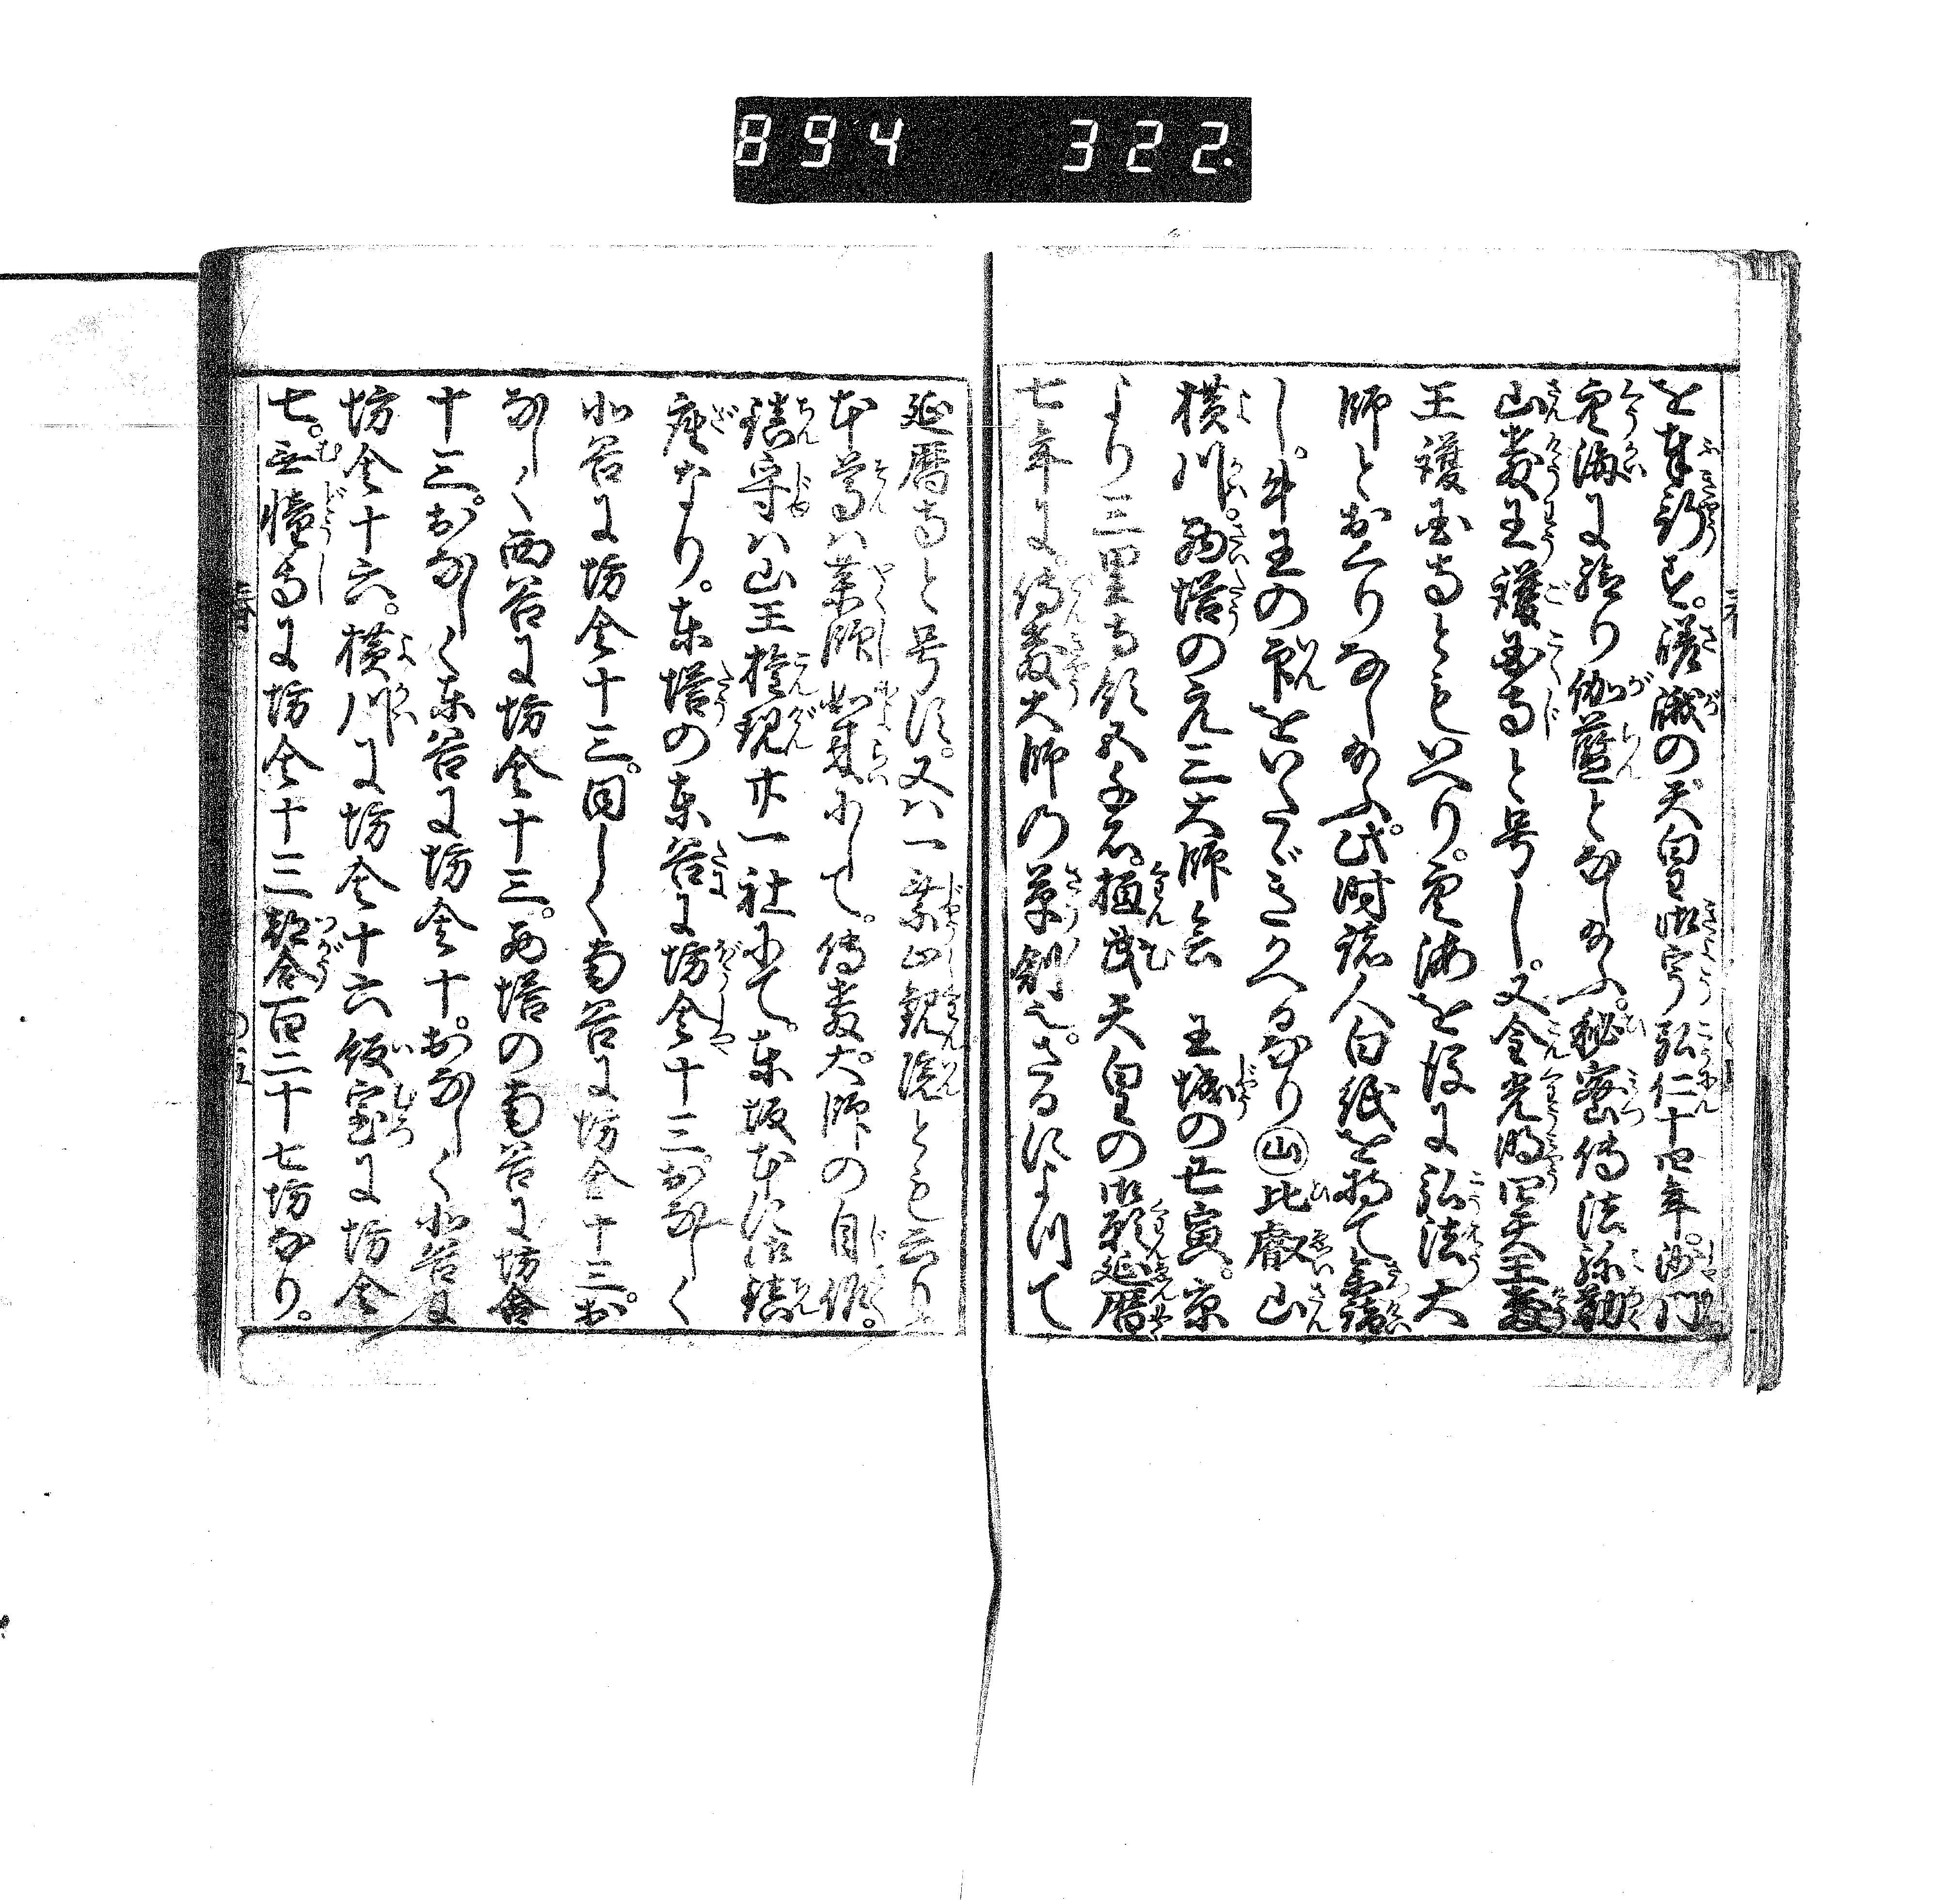 894 322.
を奉行す。嵯峨の天皇御宇弘仁十四年。沙門
空海に給り伽藍となし給ふ。秘密傳法弥勒
山教王護国寺と号し。又金光明四天王教
王護国寺ともいへり。空海を後に弘法大
師とおくりなし給ふ。此時諸人白紙を持て参詣
し。牛王の印をいたゞきかへるなり㊤山比叡山
横川。西塔の元三大師会 王城の丑寅。京
より三里寺領五千石。桓武天皇の御願延暦
七年に。傳教大師の草創也。さるによつて
延暦寺と号す。又ハ一乗止観院とも云り
本尊ハ薬師如来にして。傳教大師の自作。
鎮守ハ山王権現廿一社にて。東坂本に御鎮
座なり。東塔の東谷に坊舎十三。おなしく
北谷に坊舎十三。同しく南谷に坊舎十三。お
なしく西谷に坊舎十三。西塔の南谷に坊舎
十三。おなしく東谷に坊舎十。おなしく北谷に
坊舎十六。横川に坊舎十六飯室に坊舎
七。無憧寺に坊舎十三都合百二十七坊なり。